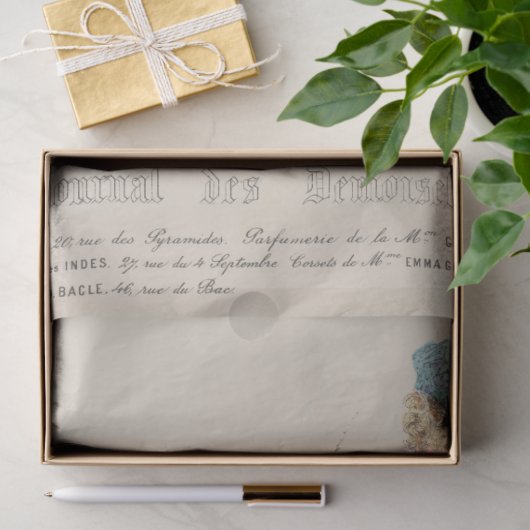 Journal des Demoisel
20, rue des Pyramides. Parfumerie de la Mon G
es INDES. 27, rue du 4 Septembre Corsets de Mme EMMA G
BACLE. 46, rue du Bac.